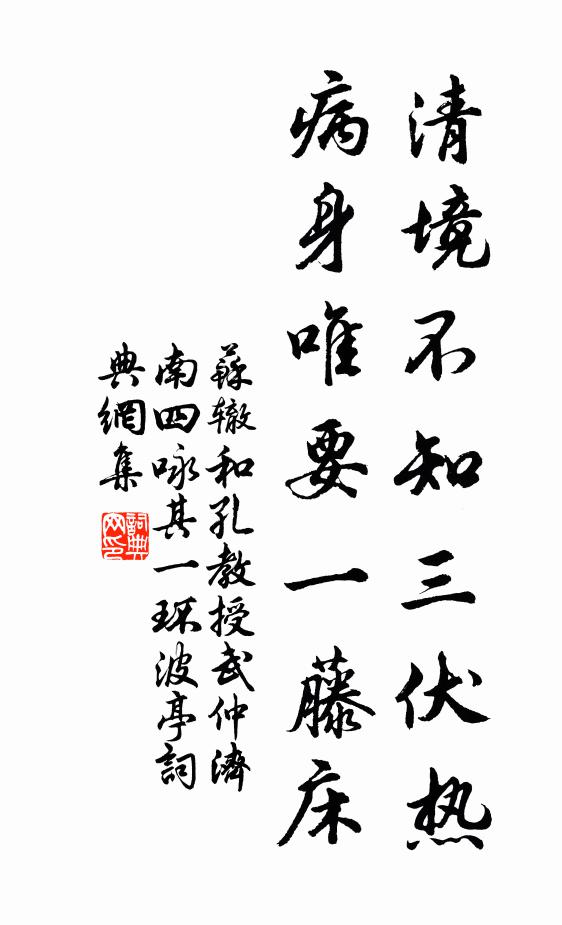 清境不知三伏热
病身唯要一藤床
蘇辙和孔教授武仲濟
南四咏其一环波亭詞
典網集
詞典
网印